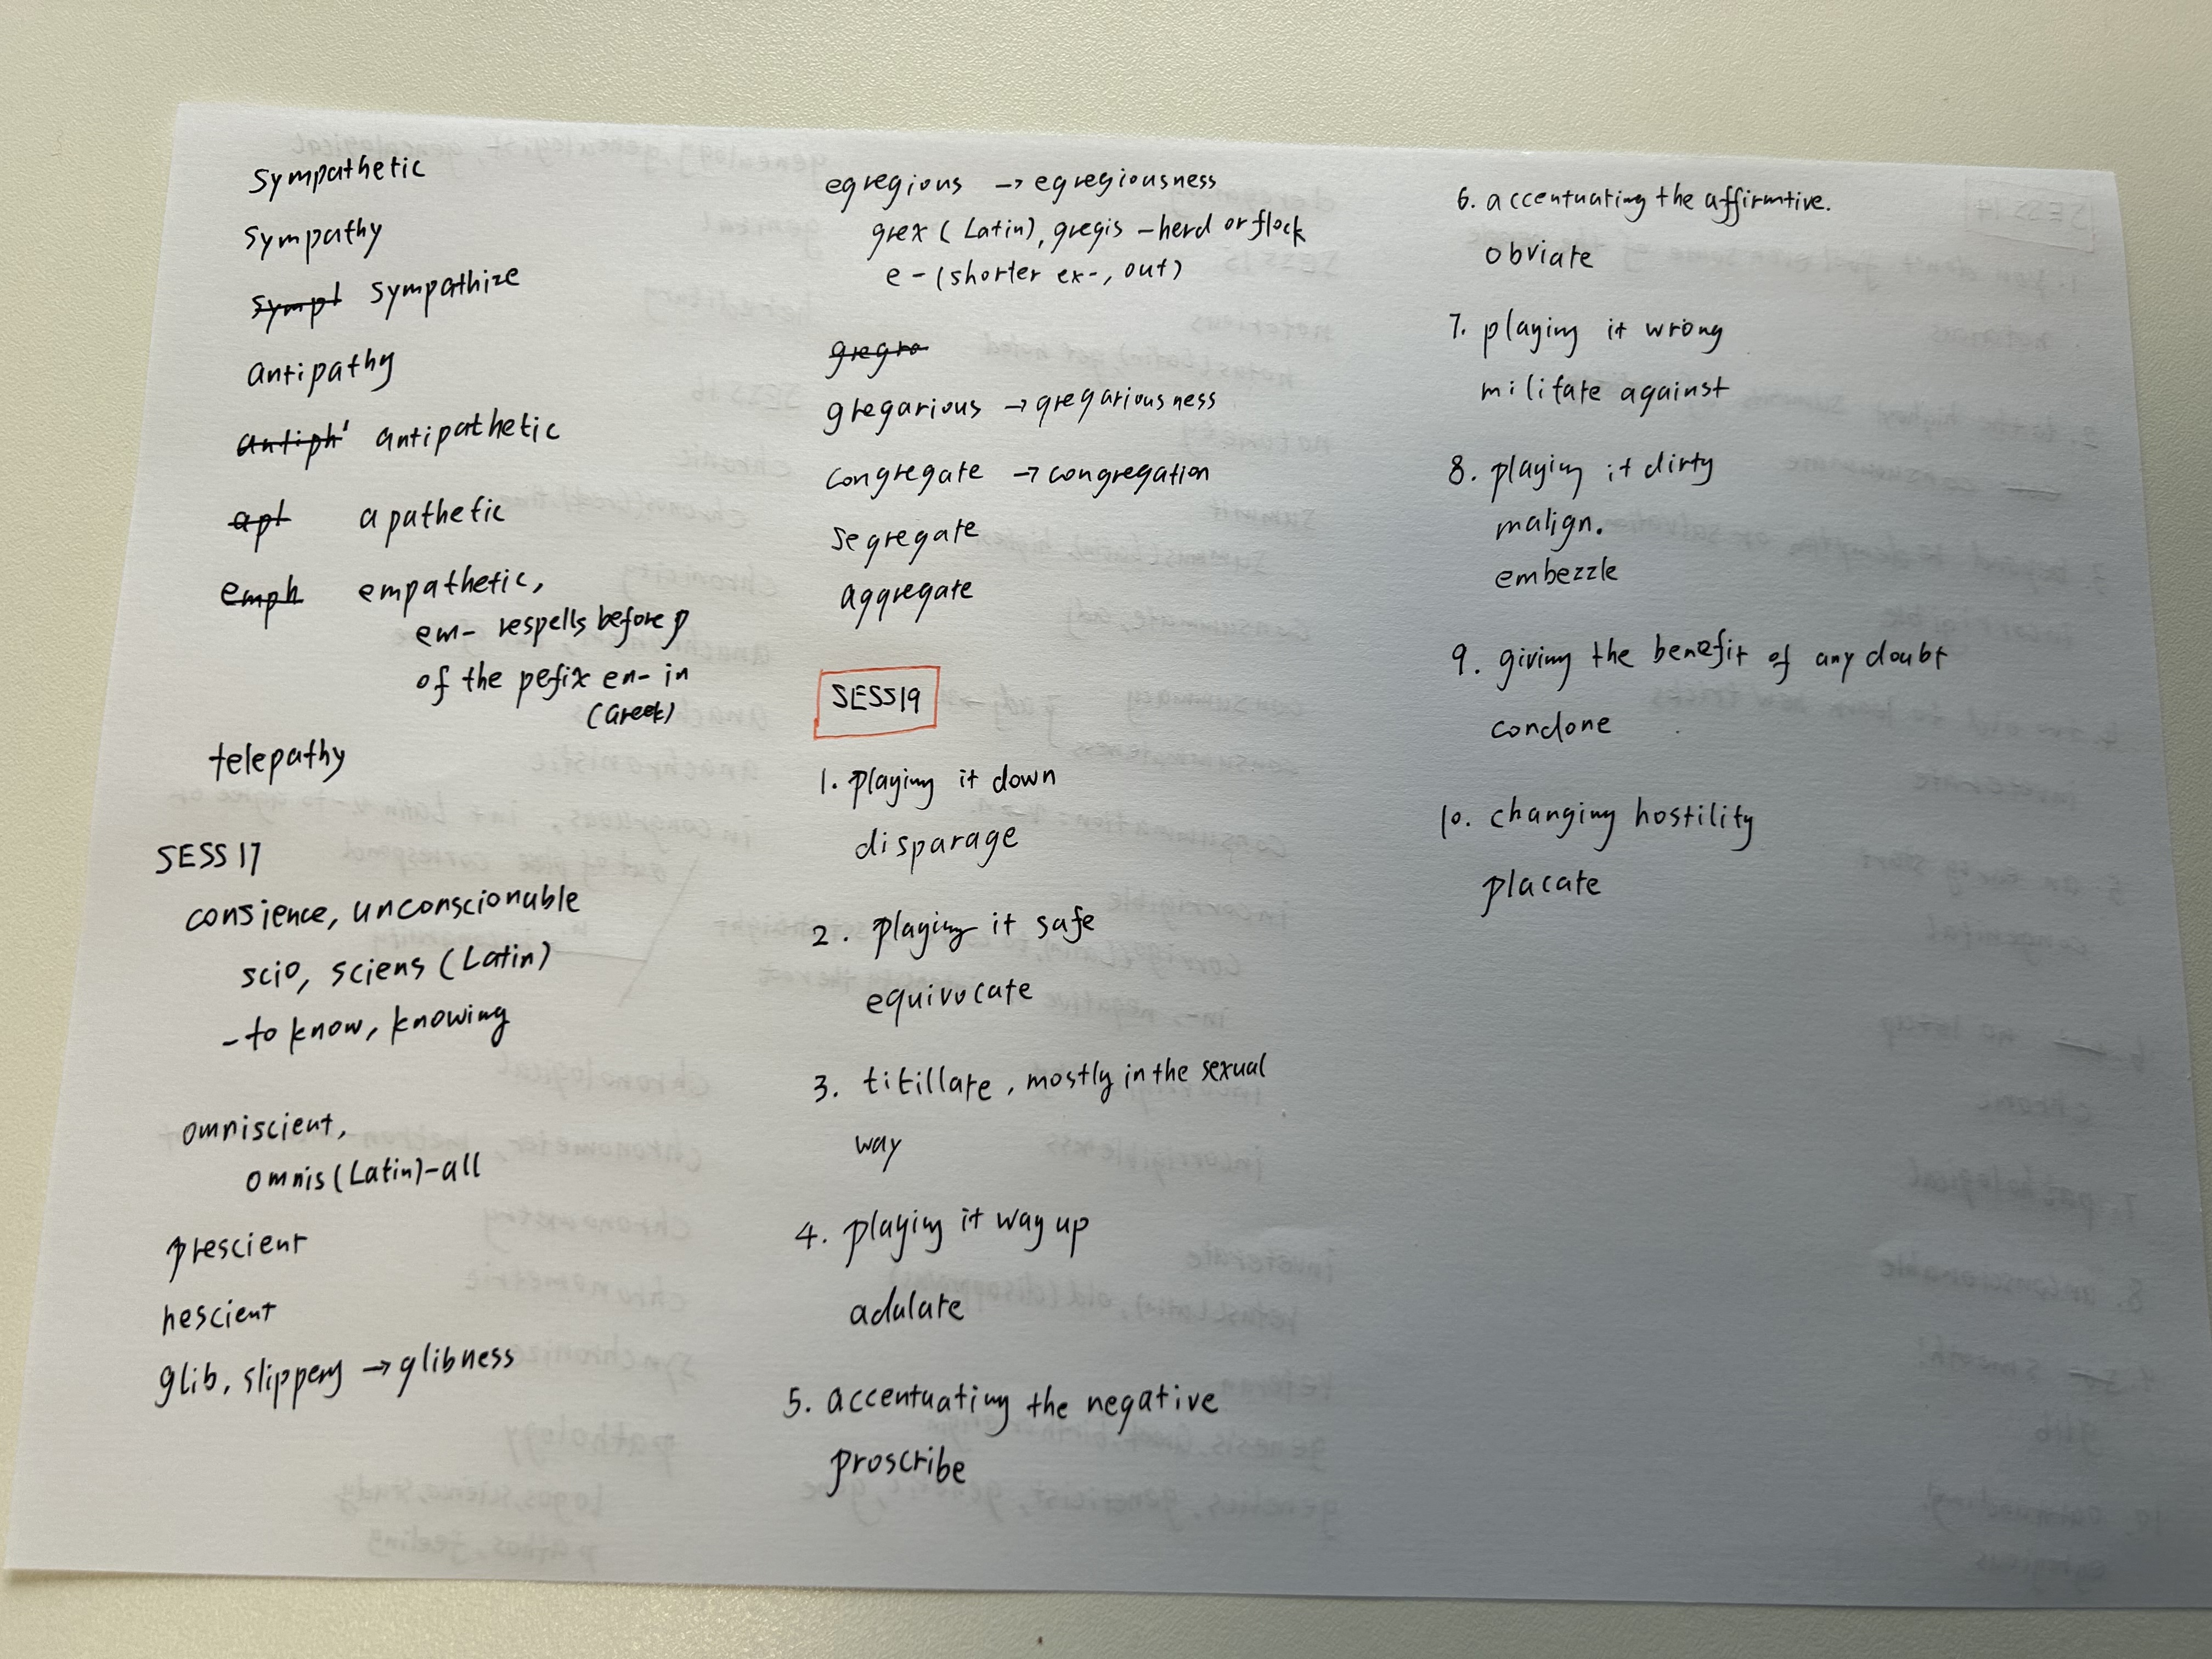 sympathetic
sympathy
sympt sympathize
antipathy
antiph' antipathetic
apt apathetic
emph empathetic,
em- respells before p
of the pefix en- in
(Greek)
telepathy
SESS 17
consience, unconscionable
scio, sciens (Latin)
- to know, knowing
omniscient,
omnis (Latin) - all
prescient
nescient
glib, slippery → glibness
egregious → egregiousness
grex (Latin), gregis - herd or flock
e - (shorter ex-, out)
gregro
gregarious → gregariousness
congregate → congregation
segregate
aggregate
SESS19
1. playing it down
disparage
2. playing it safe
equivocate
3. titillate, mostly in the sexual
way
4. playing it way up
adulate
5. accentuating the negative
proscribe
6. accentuating the affirmtive.
obviate
7. playing it wrong
militate against
8. playing it dirty
malign.
embezzle
9. giving the benefit of any doubt
condone
10. changing hostility
placate